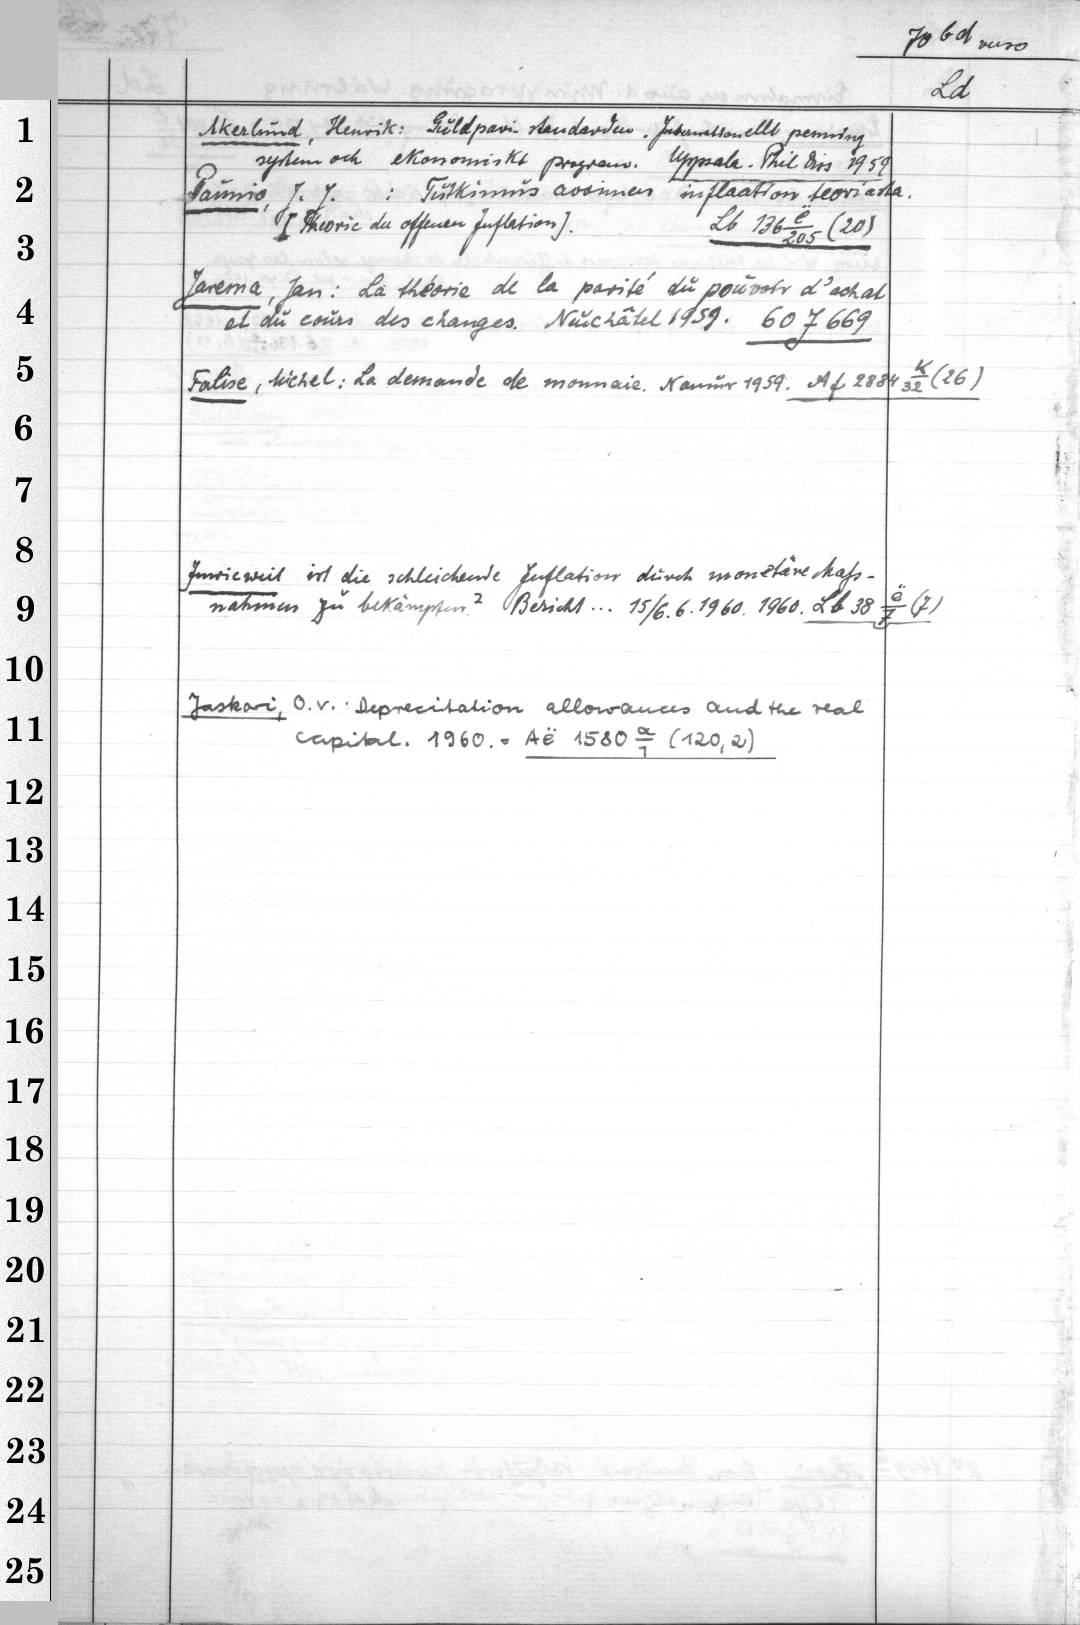 70 bd verso
Ld
1 Akerlund, Henrik: Guldpari-standarden. Internationellt penning
system och ekonomiskt program. Uppsala. Phil Diss 1959
2 Paunio, J. J. : Tutkimus avoimen inflaation teoriasta.
3 [Theorie der offenen Inflation]. Lb 136 ë/205 (20)
Jarema, Jan: La théorie de la parité du pouvoir d'achat
4 et du cours des changes. Neuchâtel 1959. 607 669
5 Falise, Michel: La demande de monnaie. Namur 1959. Af 2884 K/32 (26)
6
7
8
Inwieweit ist die schleichende Inflation durch monetäre Maß-
9 nahmen zu bekämpfen? Bericht... 15/6.6.1960. 1960. Lb 38 ë/7 (7)
10
Jaskari, O.V.: Deprecitation allowances and the real
11 capital. 1960. = Aë 1580 a/1 (120,2)
12
13
14
15
16
17
18
19
20
21
22
23
24
25